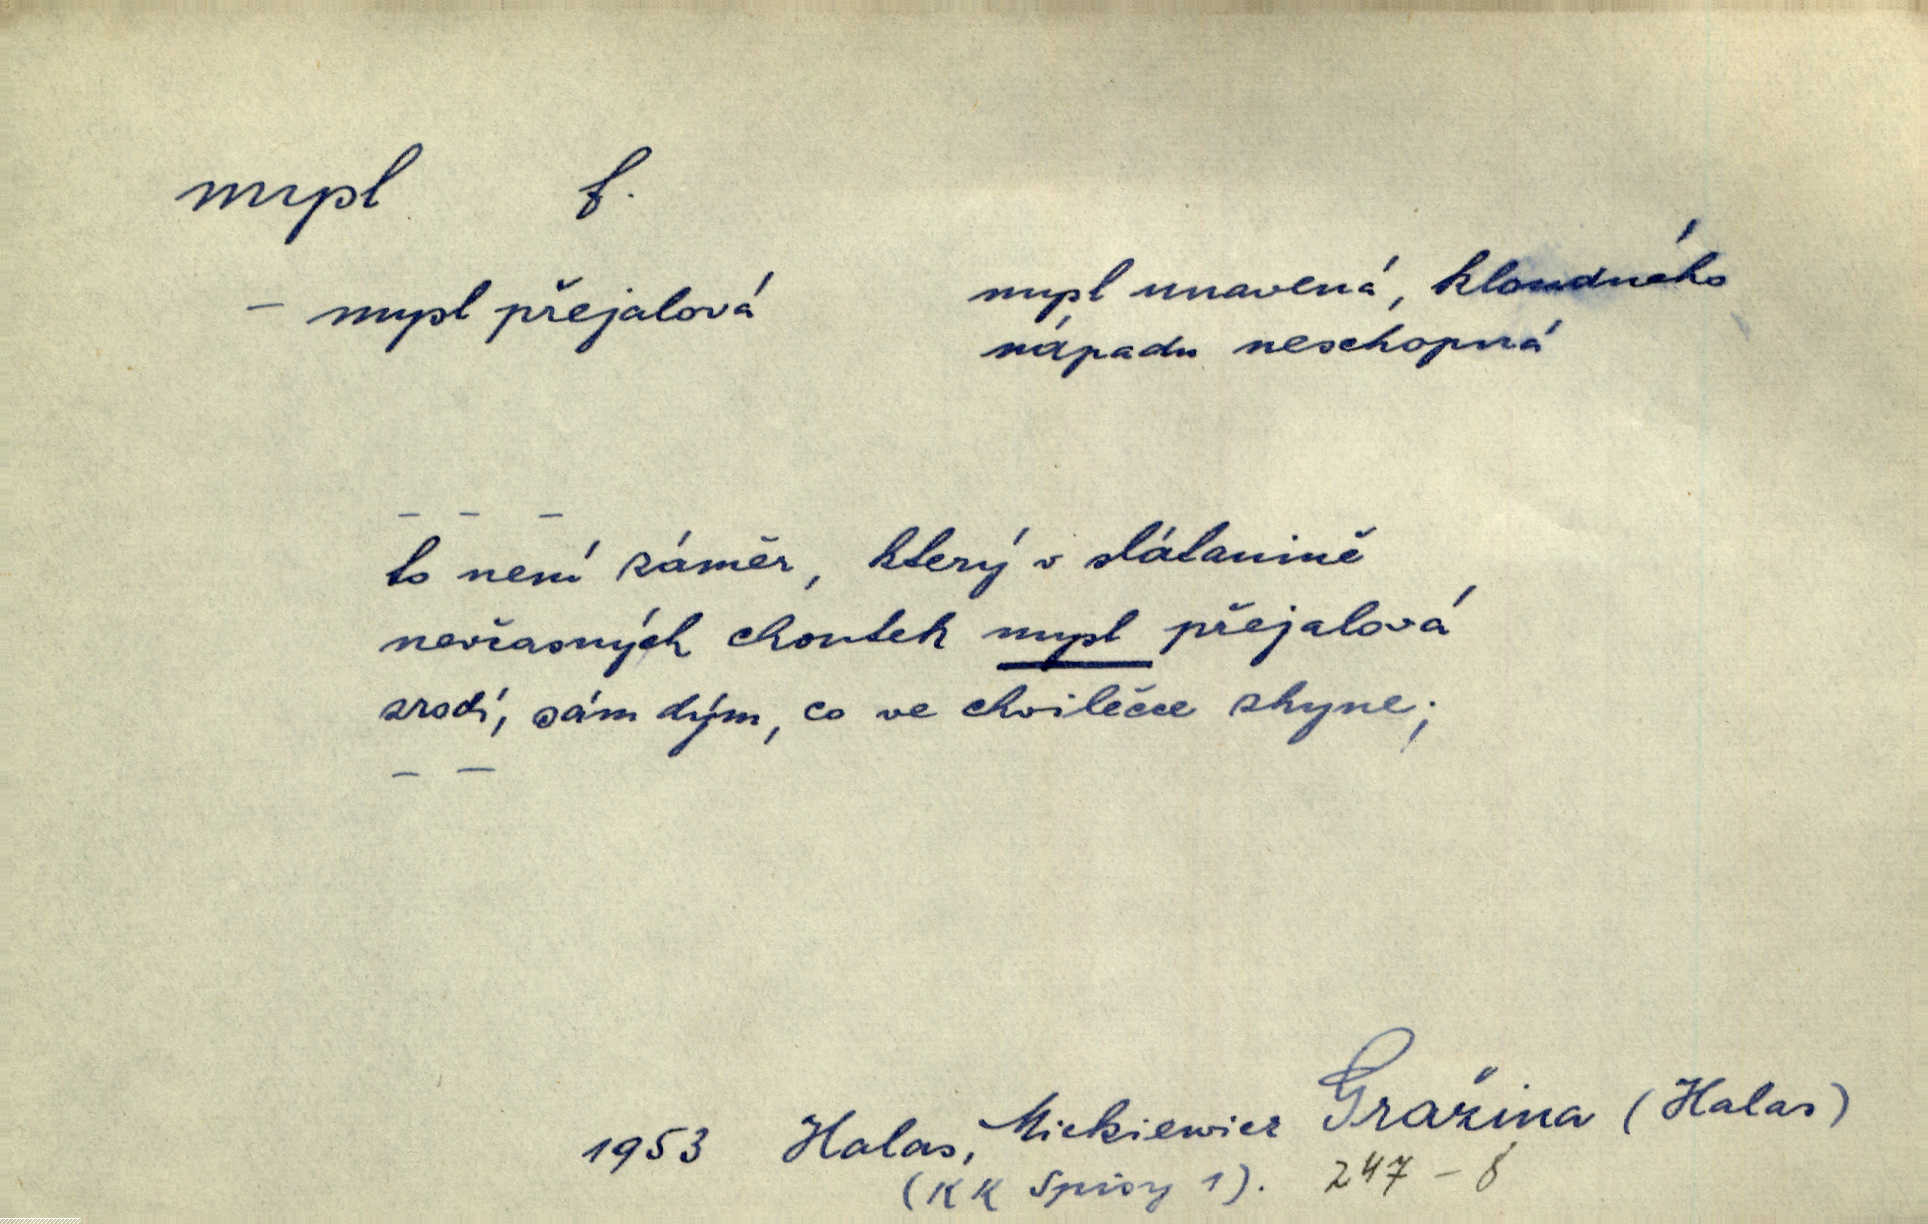 mysl f.
– mysl přejalová
mysl unavená, kloudného
nápadu neschopná
– – –
to není záměr, který v slátanině
nevčasných choutek mysl přejalová
zrodí, sám dým, co ve chvilečce zhyne;
– –
1953 Halas, Mickiewicz Gražina (Halas)
(KK Spisy 1). 247 – 8